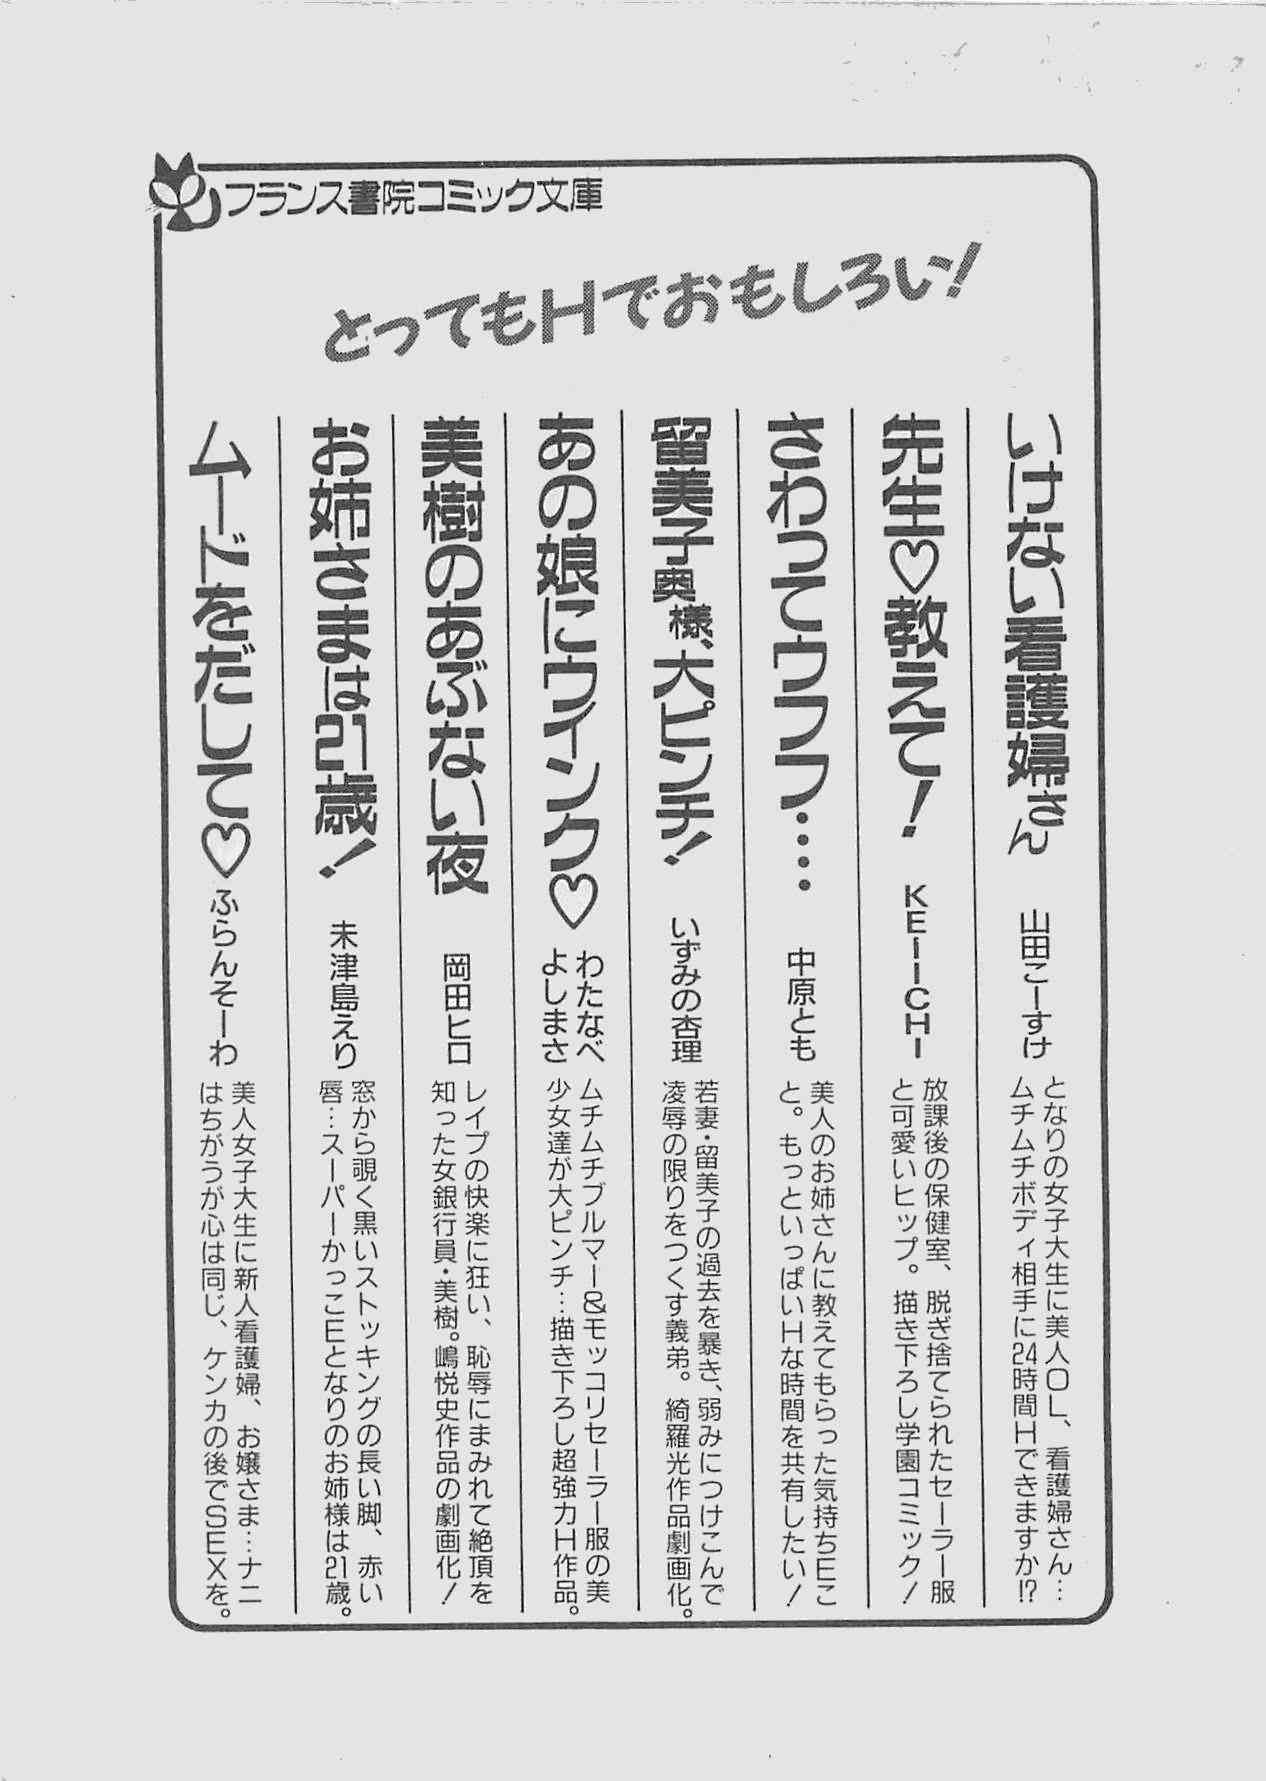 フランス書院コミック文庫
とってもHでおもしろい!
いけない看護婦さん
山田こーすけ
となりの女子大生に美人OL、看護婦さん…
ムチムチボディ相手に24時間Hできますか!?
先生♡教えて!
KEIICHI
放課後の保健室、脱ぎ捨てられたセーラー服
と可愛いヒップ。描き下ろし学園コミック!
さわってウフフ・・・・
中原とも
美人のお姉さんに教えてもらった気持ちEこ
と。もっといっぱいHな時間を共有したい!
留美子奥様、大ピンチ!
いずみの杏理
若妻・留美子の過去を暴き、弱みにつけこんで
凌辱の限りをつくす義弟。綺羅光作品劇画化。
あの娘にウインク♡
わたなべ
よしまさ
ムチムチブルマー&モッコリセーラー服の美
少女達が大ピンチ…描き下ろし超強力H作品。
美樹のあぶない夜
岡田ヒロ
レイプの快楽に狂い、恥辱にまみれて絶頂を
知った女銀行員・美樹。嶋悦史作品の劇画化!
お姉さまは21歳!
未津島えり
窓から覗く黒いストッキングの長い脚、赤い
唇…スーパーかっこEとなりのお姉様は21歳。
ムードをだして♡
ふらんそーわ
美人女子大生に新人看護婦、お嬢さま…ナニ
はちがうが心は同じ、ケンカの後でSEXを。